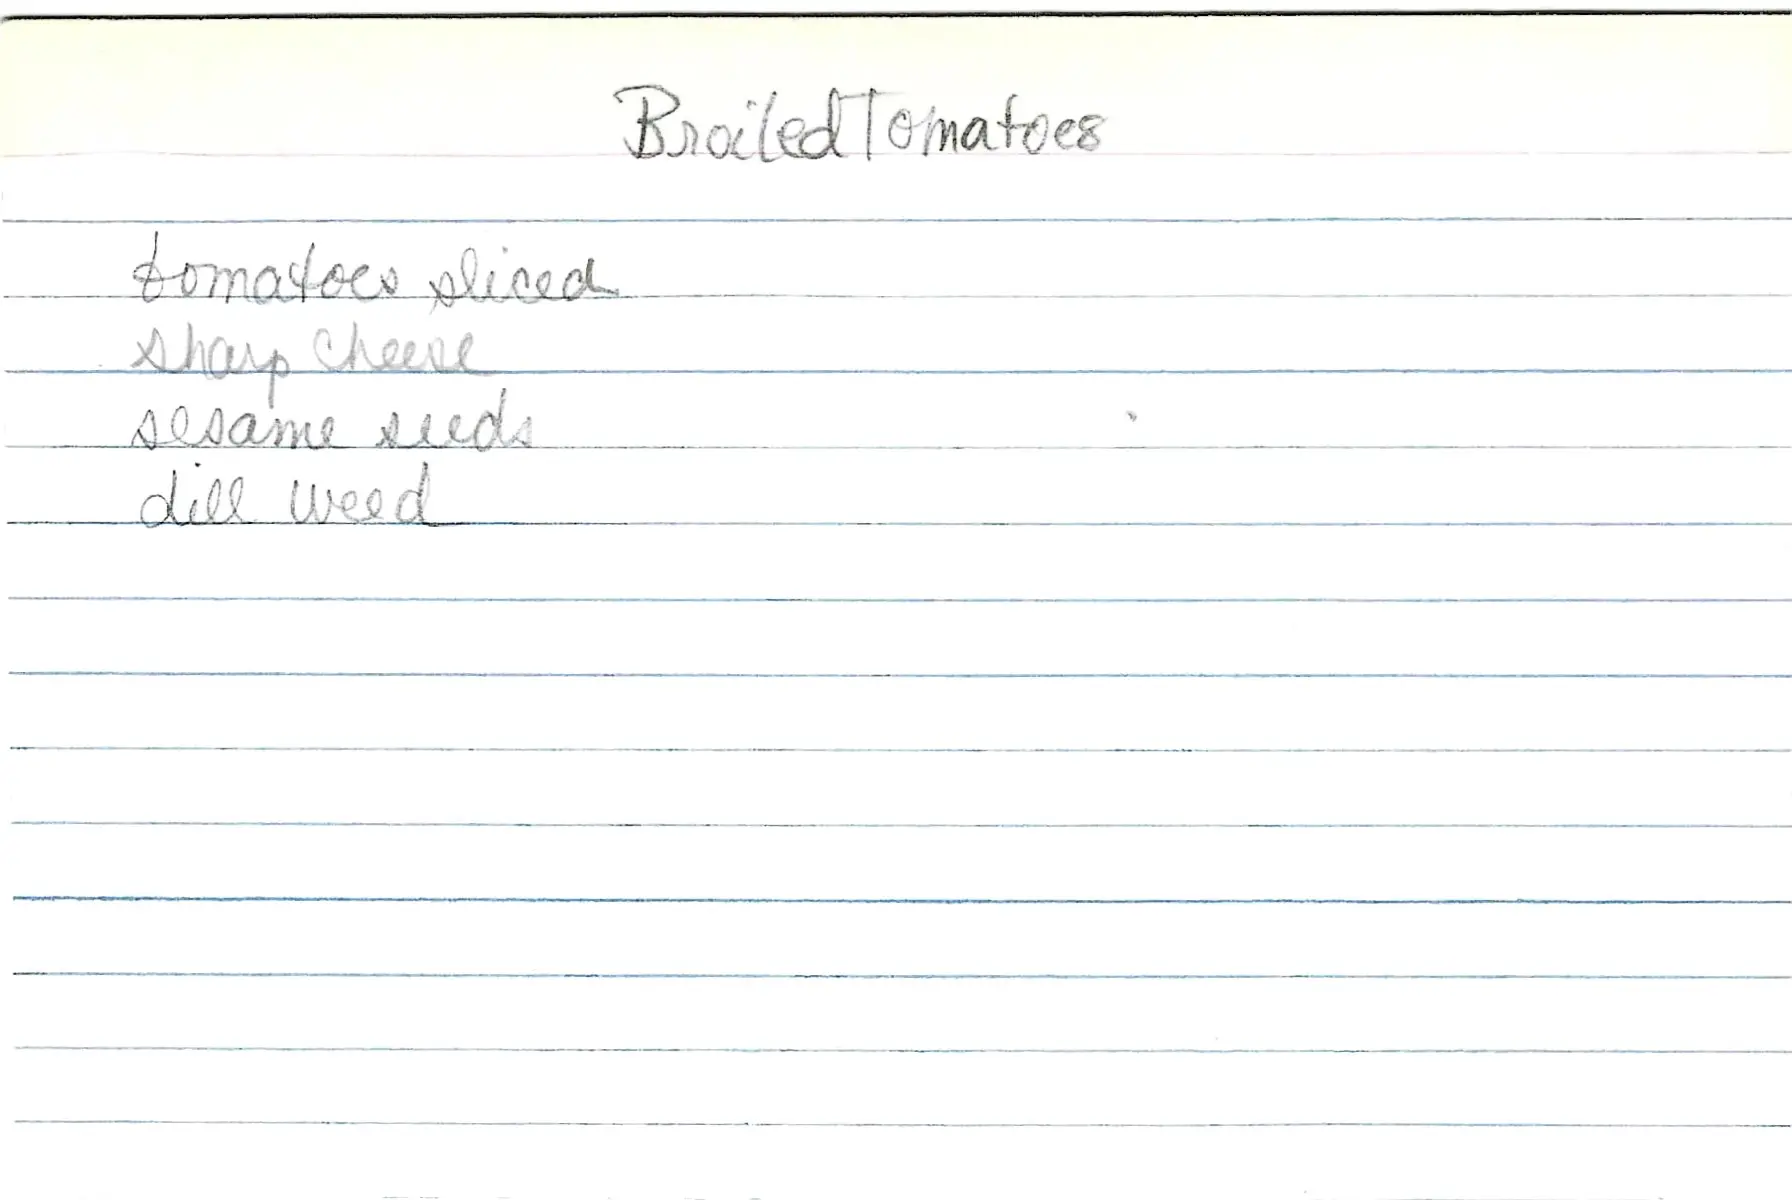 Broiled Tomatoes
tomatoes sliced
sharp cheese
sesame seeds
dill weed